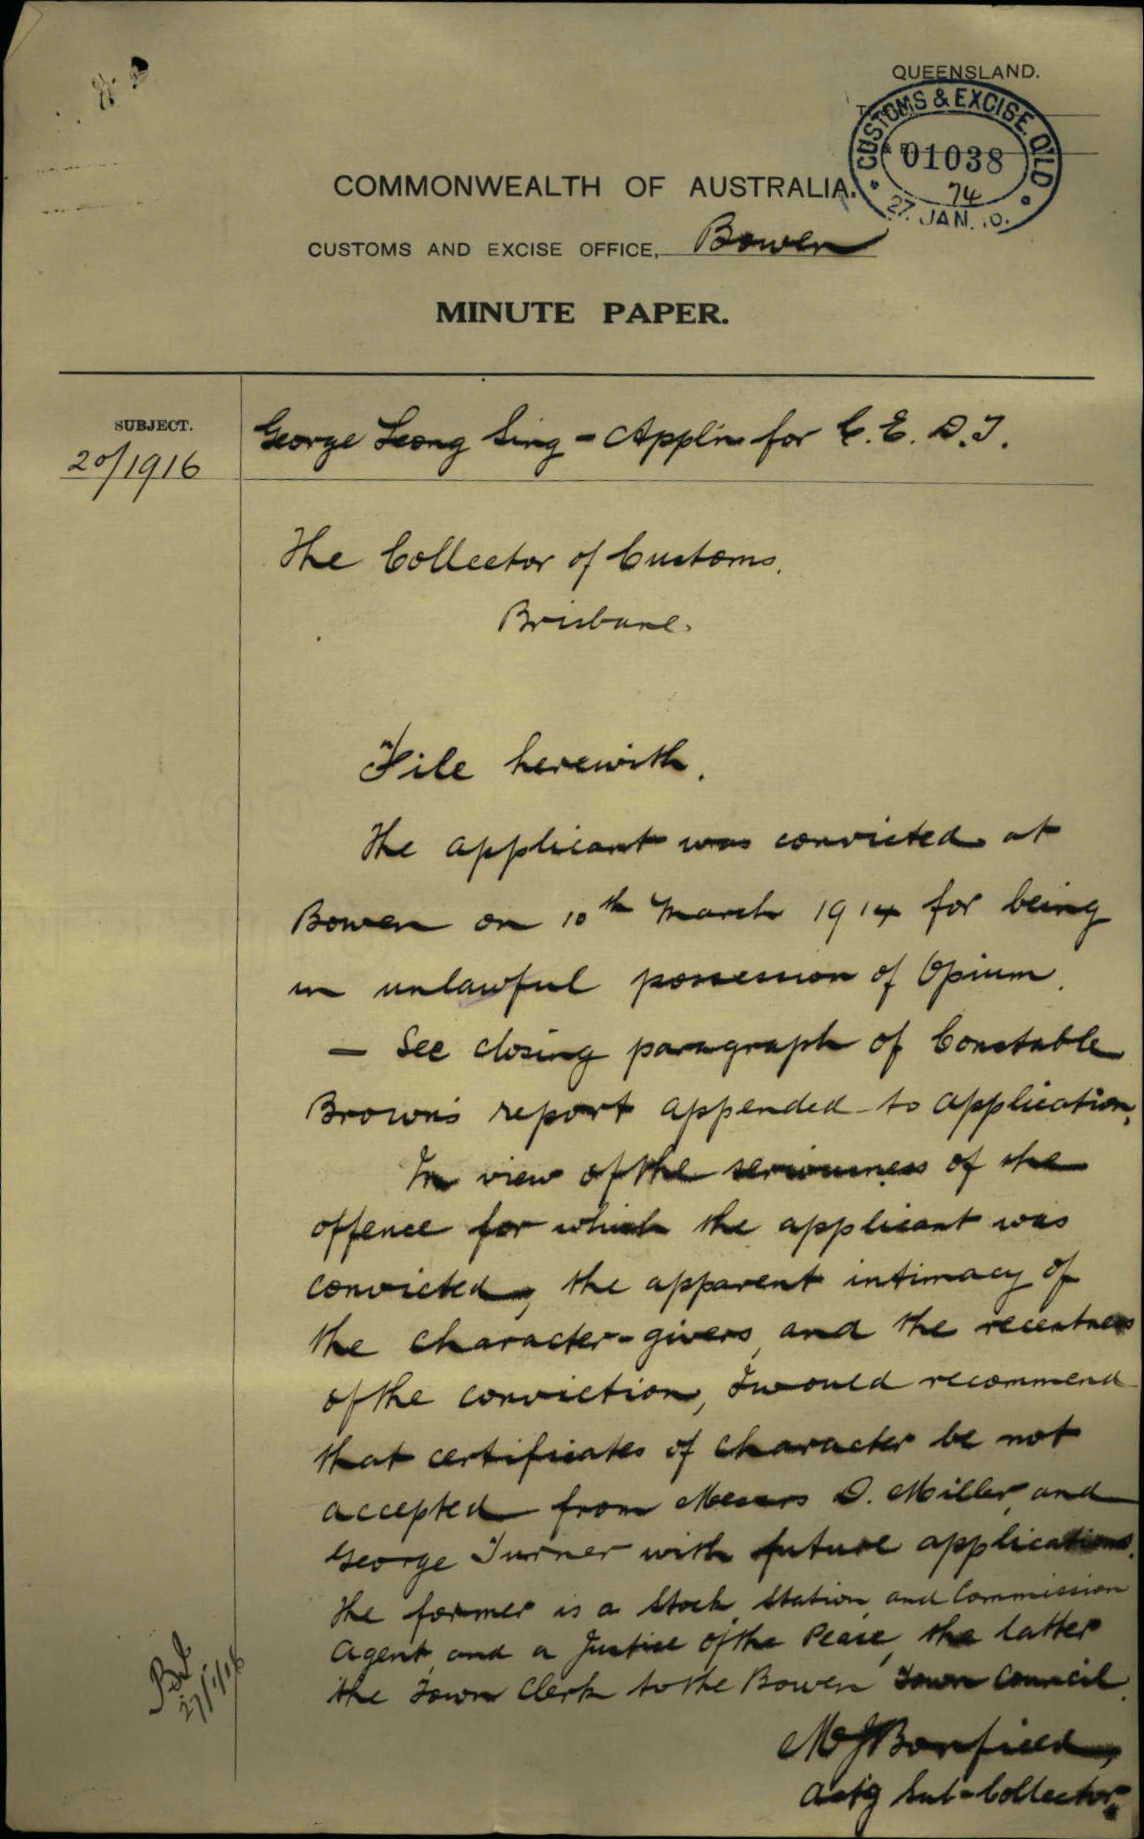 QUEENSLAND.
CUSTOMS & EXCISE. Q'LD
01038
74
27. JAN.
COMMONWEALTH OF AUSTRALIA.
CUSTOMS AND EXCISE OFFICE, Bowen
MINUTE PAPER.
SUBJECT.
20/1916
George Leong Sing - Applin for C. E. D. T.
The Collector of Customs.
Brisbane.
File herewith.
The applicant was convicted at
Bowen on 10th March 1914 for being
in unlawful possession of Opium.
— See closing paragraph of Constable
Brown's report appended to application.
In view of the seriousness of the
offence for which the applicant was
convicted, the apparent intimacy of
the character-givers, and the recentness
of the conviction, I would recommend
that certificates of character be not
accepted from Messrs D. Miller, and
George Turner with future applications.
The former is a Stock, Station, and Commission
Agent, and a Justice of the Peace, the latter
the Town Clerk to the Bowen Town Council.
27/1/16
MJBonfield,
Actg Sub-Collector.